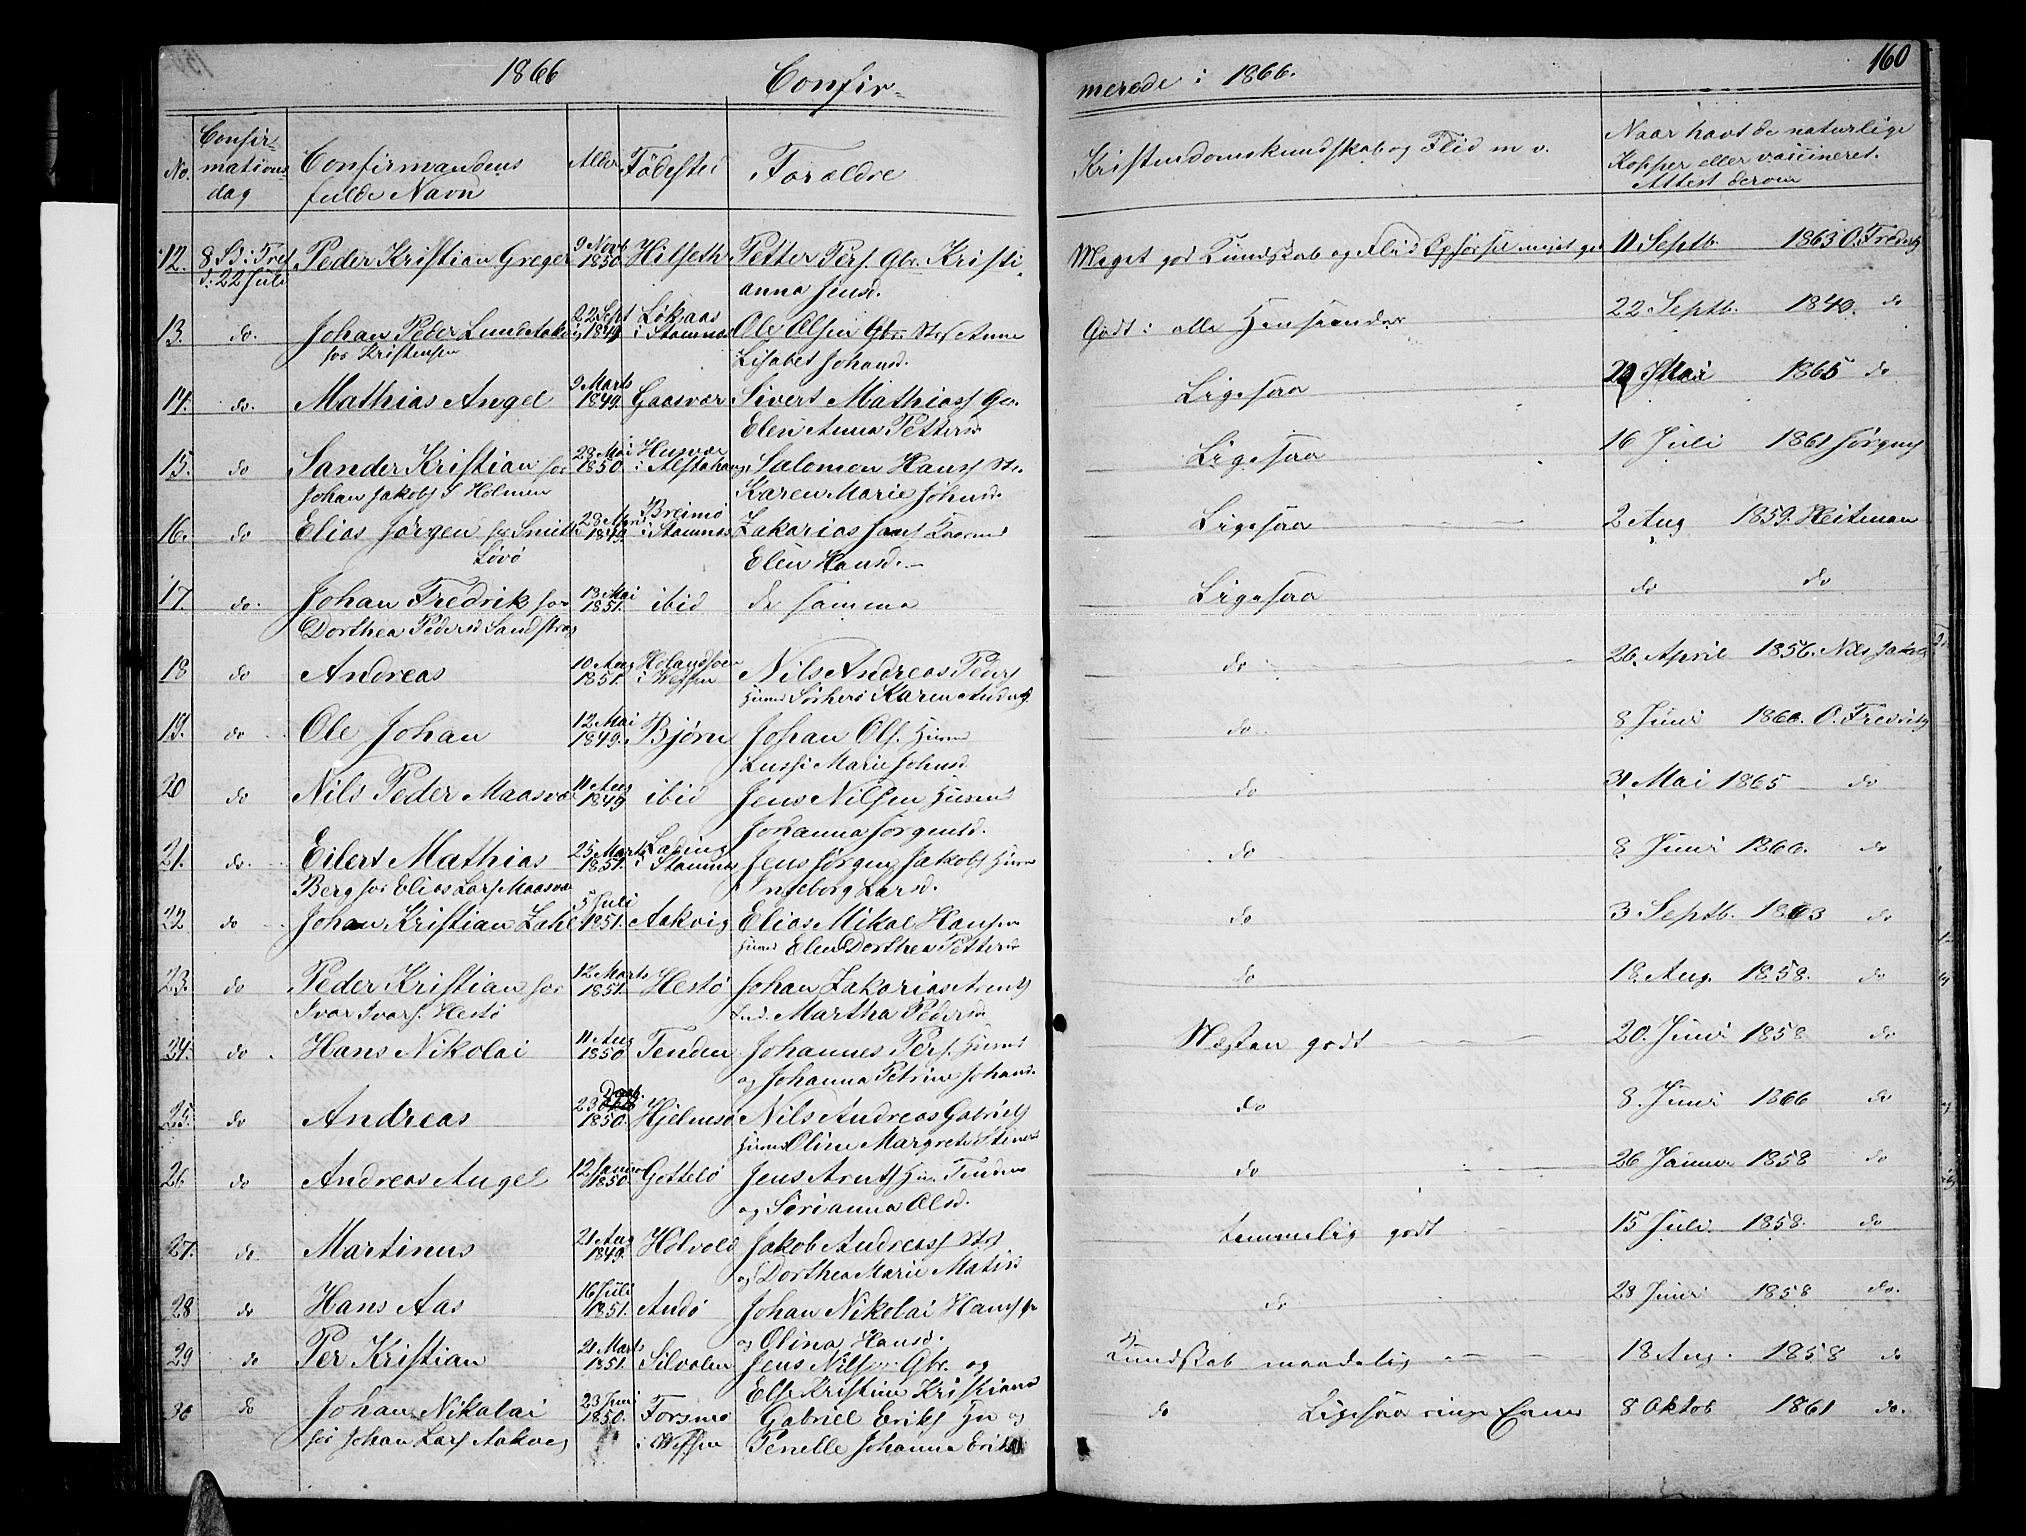 1866 Confir-
merede i 1866. 160
No. Confir-mations-dag Confirmandens fulde Navn Alder Fødested Forældre Kristendomskundskab og Flid m v. Naar havt de naturlige Kopper eller vaccineret. Attest derom
12. 8 S. i Tref d: 22 Juli Peder Kristian Greger 9 Novb 1850 Hilseth Petter Pers. Gbr. Kristi- Meget god Kundskab og Flid Opførsel meget god 11 Septb. 1863 O. Fredrik
anna Jensd.
13. do. Johan Peder Lund Aakvig 22 Sept 1849 Løkaas i Stamnes Ole Olsen Gbr. Anne Godt i alle Henseender 22 Septb. 1849. do
for Kristensen Lisabet Johansd.
14. do. Mathias Angel 9 Marts 1849. Gaasvær Sivert Mathiass Gbr. Ligesaa Mai 1865 do
Elen Anna Pettersd.
15. do Sander Kristian for 28 Mai 1850. Husvær i Alstahoug Salomon Hanss Str. Ligesaa 16 Juli 1861 Jørgens
Johan Jakobs S Holmen Karen Marie Johnsd.
16. do Elias Jørgen for Smith 28 1849. Breimo i Stamnes Zakarias Ligesaa 2 Aug 1859. Heitman
Løvø Elen Hansd.
17. do. Johan Fredrik for 13 Mai 1851. ibid de samme Ligesaa do do
Dorthea Pedersd Sandstrag
18 do Andreas 10 Aug 1851. i Vefsen Nils Andreas Peders do 26. April 1856. Nils Jakob
Huusm Karen Anders
19. do Ole Johan 12 Mai 1849. Bjørn Johan Ols. Huusm do 8 Juni 1860. O. Fredrik
Lussi Marie Johnsd.
20 do Nils Peder Maasvær 11 Aug 1849 ibid Jens Nilsen Huusm do 31 Mai 1865 do
Johanna Jørgensd.
21. do. Eilert Mathias 25 Marts 1851. Lading i Stamnes Jens Jørgen Jakobs Huusm do 8 Juni 1866. do
Berg for Elias Lars Maasvær Ingeborg Larsd.
22 do Johan Kristian Zahl 5 Juli 1851. Aakvig Elias Mikal Hansen do 3 Septb. 1863 do
Huusm Elen Dorthea Pettersd
23. do Peder Kristian for 12 Marts 1851. Hestø Johan Zakarias Arents do 18. Aug. 1858. do
Ivar Ivars. Hestø Martha Pedersd
24. do Hans Nikolai 11 Aug 1850 Tenden Johannes Pers. Huusm Næsten godt 20. Juni 1858 do
og Johanna Petrine Johansd.
25. do Andreas 23 Decb. 1850. Hjelmsø Nils Andreas Gabriels do 8. Juni 1866 do
Huusm Oline Margrete Steners
26 do Andreas Angel 12 Januar 1850. Gøttelø Jens Arnts Huusm Tenden do 26 Januar 1858 do
og Serianna Olsd.
27. do Martinus 21 Aug 1849. Holvold Jakob Andreass Str temmelig godt 15 Juli 1858. do
og Dorthea Marie Matisd
28 do Hans Aas 16 Juli 1851. Andø Johan Nikolai Hanss do 28 Juni 1858 do.
og Olina Hansd.
29 do Per Kristian 21 Marts 1851. Silvalen Jens Nilsen Gbr. og Kundskab maadelig 18 Aug. 1858 do
Else Kristine Kristiansd
30 do Johan Nikolai 23 Juni 1850. Forsmo Gabriel Eriks Hu og do Ligesaa ringe Evner 8 Oktob 1861 do.
for Johan Lars Aakvig i Vefsen Penelle Johanna Eriks